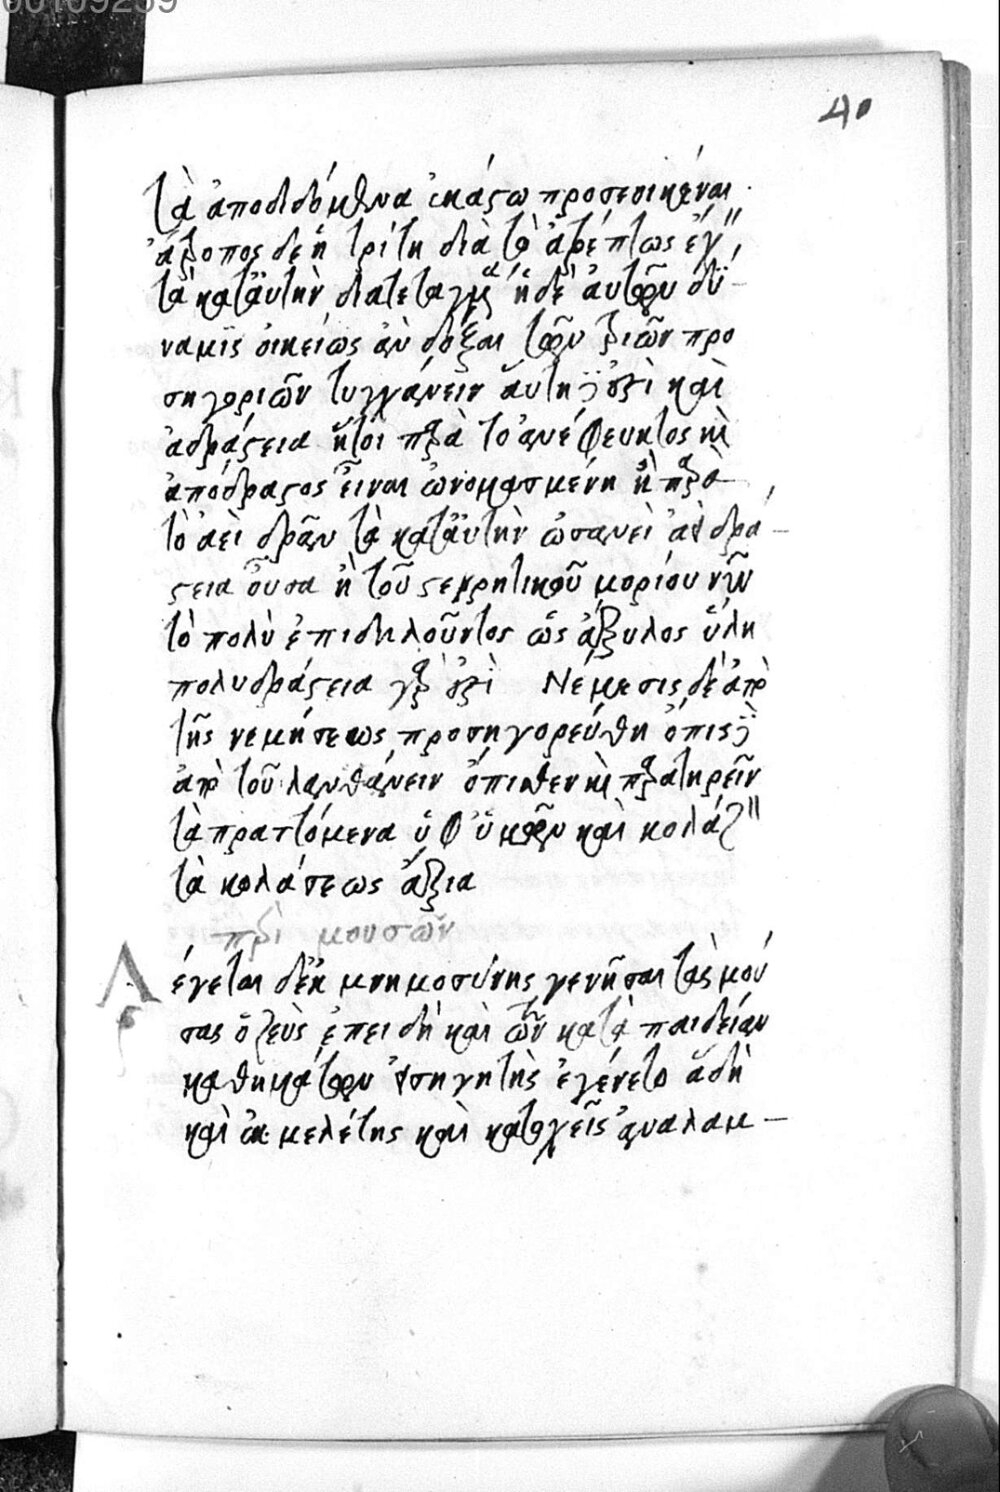 00109259
40
τὰ ἀποδιδόμενα ἑκάστω προσεοικέναι.
ἄτροπος δὲ ἡ τρίτη διὰ τὸ ἀτρέπτως ἔχ
τὰ κατ' αὐτὴν διατεταγμένα ἡ δὲ αὐτῶν δύ-
ναμις οἰκείως ἂν δόξαι τῶν τριῶν προ
σηγοριῶν τυγχάνειν αὕτη ἐστὶ καὶ
ἀδράστεια ἤτοι παρὰ τὸ ἀνέκφευκτος καὶ
ἀπόδραστος εἶναι ὠνομασμένη ἢ παρὰ
τὸ ἀεὶ δρᾶν τὰ κατ' αὐτὴν ὡσανεὶ ἀεὶ δρά-
στεια οὖσα ἢ τοῦ στερητικοῦ μορίου νῦν
τὸ πολὺ ἐπιδηλοῦντος ὡς ἄξυλος ὕλη
πολυδράστεια γάρ ἐστὶ Νέμεσις δὲ ἀπὸ
τῆς νεμήσεως προσηγορεύθη ὄπις
ἀπὸ τοῦ λανθάνειν ὄπισθεν καὶ παρατηρεῖν
τὰ πραττόμενα ὑφ' ὑμῶν καὶ κολάζ
τὰ κολάσεως ἄξια
περὶ μουσῶν
Λέγεται δ' ἐκ μνημοσύνης γενῆσαι τὰς μού
σας ὁ ζεὺς ἐπειδὴ καὶ τῶν κατὰ παιδείαν
μαθημάτων εἰσηγητὴς ἐγένετο ἃ δὴ
καὶ ἐκ μελέτης καὶ κατοχῆς ἀναλαμ-